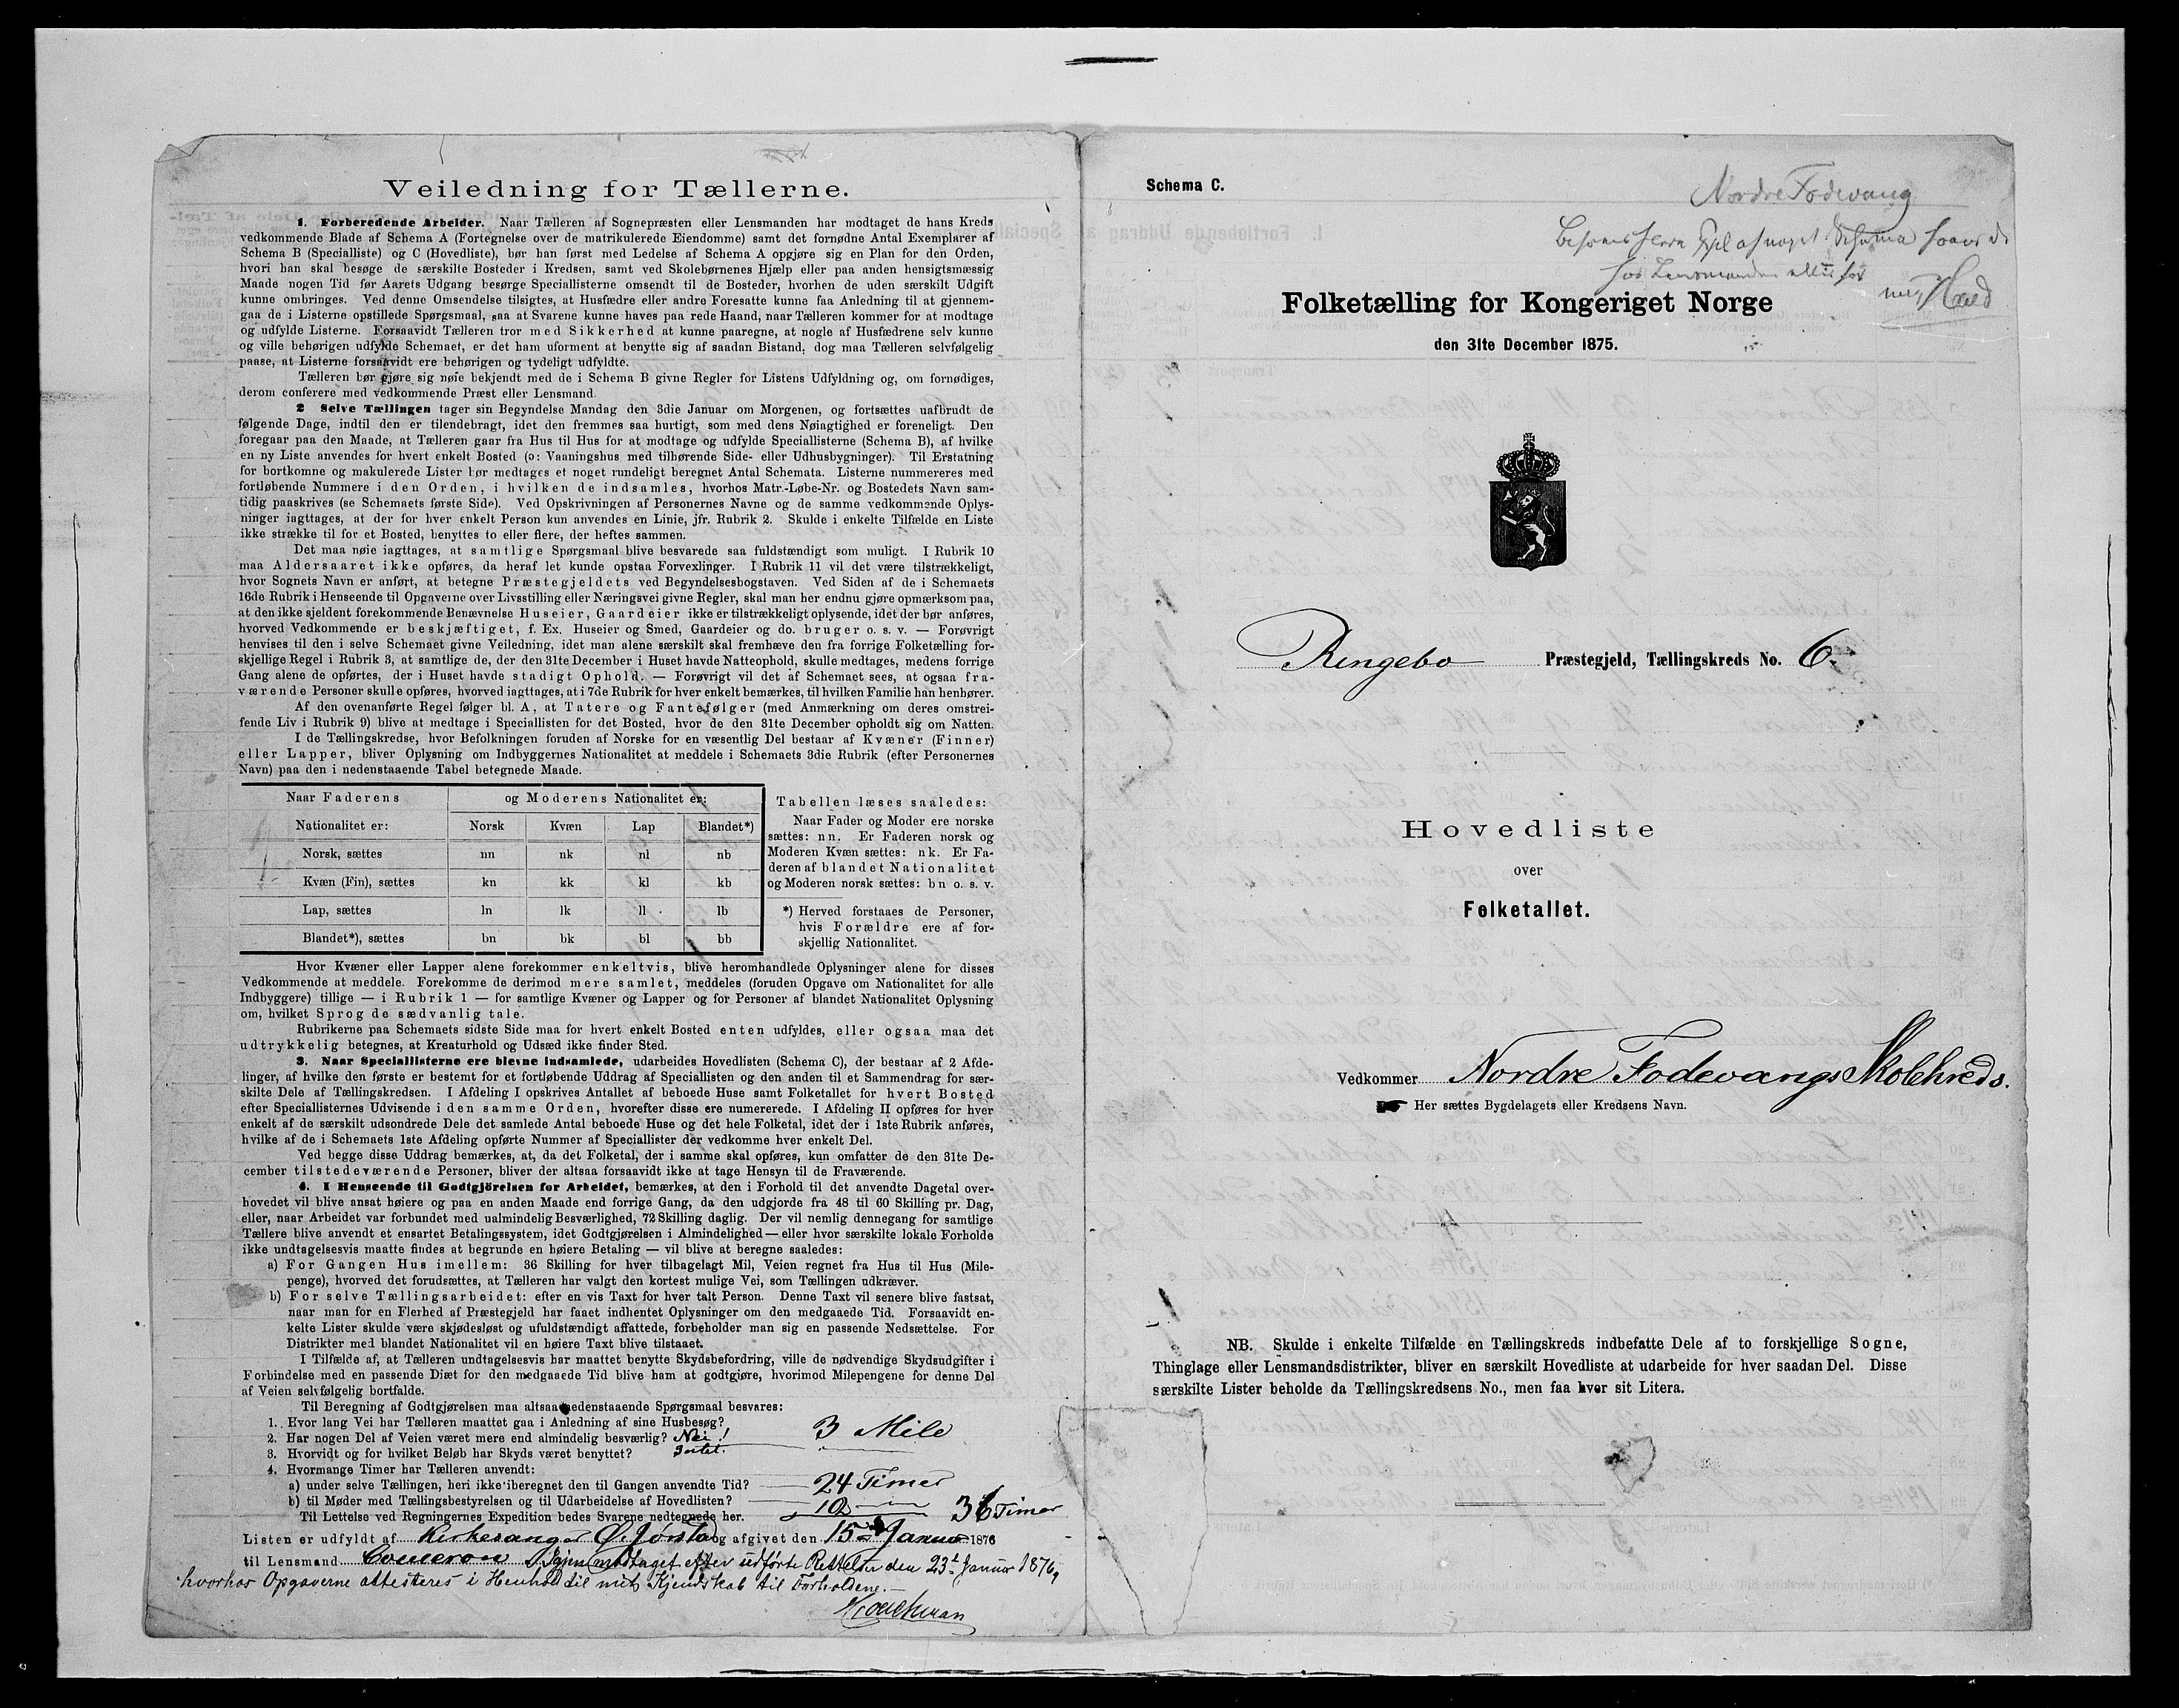 Veiledning for Tællerne.
1. Forberedende Arbeider. Naar Tælleren af Sognepræsten eller Lensmanden har modtaget de hans Kreds
vedkommende Blade af Schema A (Fortegnelse over de matrikulerede Eiendomme) samt det fornødne Antal Exemplarer af
Schema B (Specialliste) og C (Hovedliste), bør han først med Ledelse af Schema A opgjøre sig en Plan for den Orden,
hvori han skal besøge de særskilte Bosteder i Kredsen, samt ved Skolebørnenes Hjælp eller paa anden hensigtsmæssig
Maade nogen Tid før Aarets Udgang besørge Speciallisterne omsendt til de Bosteder, hvorhen de uden særskilt Udgift
kunne ombringes. Ved denne Omsendelse tilsigtes, at Husfædre eller andre Foresatte kunne faa Anledning til at gjennem-
gaa de i Listerne opstillede Spørgsmaal, saa at Svarene kunne haves paa rede Haand, naar Tælleren kommer for at modtage
og udfylde Listerne. Forsaavidt Tælleren tror med Sikkerhed at kunne paaregne, at nogle af Husfædrene selv kunne
og ville behørigen udfylde Schemaet, er det ham uforment at benytte sig af saadan Bistand, dog maa Tælleren selvfølgelig
paase, at Listerne forsaavidt ere behørigen og tydeligt udfyldte.
Tælleren bør gjøre sig nøie bekjendt med de i Schema B givne Regler for Listens Udfyldning og, om fornødiges,
derom conferere med vedkommende Præst eller Lensmand.
2 Selve Tællingen tager sin Begyndelse Mandag den 3die Januar om Morgenen, og fortsættes uafbrudt de
følgende Dage, indtil den er tilendebragt, idet den fremmes saa hurtigt, som med dens Nøiagtighed er foreneligt. Den
foregaar paa den Maade, at Tælleren gaar fra Hus til Hus for at modtage og udfylde Speciallisterne (Schema B), af hvilke
en ny Liste anvendes for hvert enkelt Bosted (o: Vaaningshus med tilhørende Side- eller Udhusbygninger). Til Erstatning
for bortkomne og makulerede Lister bør medtages et noget rundeligt beregnet Antal Schemata. Listerne nummereres med
fortløbende Nummere i den Orden, i hvilken de indsamles, hvorhos Matr.-Løbe-Nr. og Bostedets Navn sam-
tidig paaskrives (se Schemaets første Side). Ved Opskrivningen af Personernes Navne og de samme vedkommende Oplys-
ninger iagttages, at der for hver enkelt Person kun anvendes en Linie, jfr. Rubrik 2. Skulde i enkelte Tilfælde en Liste
ikke strække til for et Bosted, benyttes to eller flere, der heftes sammen.
Det maa nøie iagttages, at samtlige Spørgsmaal blive besvarede saa fuldstændigt som muligt. I Rubrik 10
maa Aldersaaret ikke opføres, da heraf let kunde opstaa Forvexlinger. I Rubrik 11 vil det være tilstrækkeligt,
hvor Sognets Navn er anført, at betegne Præstegjeldets ved Begyndelsesbogstaven. Ved Siden af de i Schemaets
16de Rubrik i Henseende til Opgaverne over Livsstilling eller Næringsvei givne Regler, skal man her endnu gjøre opmærksom paa,
at den ikke sjeldent forekommende Benævnelse Huseier, Gaardeier ikke er tilstrækkeligt oplysende, idet der bør anføres,
hvorved Vedkommende er beskjæftiget, f. Ex. Huseier og Smed, Gaardeier og do. bruger o. s. v. — Forøvrigt
henvises til den i selve Schemaet givne Veiledning, idet man alene særskilt skal fremhæve den fra forrige Folketælling for-
skjellige Regel i Rubrik 3, at samtlige de, der den 31te December i Huset havde Natteophold, skulle medtages, medens forrige
Gang alene de opførtes, der i Huset havde stadigt Ophold. — Forøvrigt vil det af Schemaet sees, at ogsaa fra-
værende Personer skulle opføres, hvorved iagttages, at i 7de Rubrik for hver enkelt bemærkes, til hvilken Familie han henhører.
Af den ovenanførte Regel følger bl. A, at Tatere og Fantefølger (med Anmærkning om deres omstrei-
fende Liv i Rubrik 9) blive at medtage i Speciallisten for det Bosted, hvor de den 31te December opholdt sig om Natten.
I de Tællingskredse, hvor Befolkningen foruden af Norske for en væsentlig Del bestaar af Kvæner (Finner)
eller Lapper, bliver Oplysning om Indbyggernes Nationalitet at meddele i Schemaets 3die Rubrik (efter Personernes
Navn) paa den i nedenstaaende Tabel betegnede Maade.
Naar Faderens og Moderens Nationalitet er:
Nationalitet er: Norsk Kvæn Lap Blandet*)
Norsk, sættes nn nk nl nb
Kvæn (Fin), sættes kn kk kl kb
Lap, sættes ln lk ll lb
Blandet*), sættes bn bk bl bb
Tabellen læses saaledes:
Naar Fader og Moder ere norske
sættes: nn. Er Faderen norsk og
Moderen Kvæn sættes: nk. Er Fa-
deren af blandet Nationalitet
og Moderen norsk sættes: bn o. s. v.
*) Herved forstaaes de Personer,
hvis Forældre ere af for-
skjellig Nationalitet.
Hvor Kvæner eller Lapper alene forekommer enkeltvis, blive heromhandlede Oplysninger alene for disses
Vedkommende at meddele. Forekomme de derimod mere samlet, meddeles (foruden Opgave om Nationalitet for alle
Indbyggere) tillige — i Rubrik 1 — for samtlige Kvæner og Lapper og for Personer af blandet Nationalitet Oplysning
om, hvilket Sprog de sædvanlig tale.
Rubrikerne paa Schemaets sidste Side maa for hvert enkelt Bosted enten udfyldes, eller ogsaa maa det
udtrykkelig betegnes, at Kreaturhold og Udsæd ikke finder Sted.
3. Naar Speciallisterne ere blevne indsamlede, udarbeides Hovedlisten (Schema C), der bestaar af 2 Afde-
linger, af hvilke den første er bestemt for et fortløbende Uddrag af Speciallisten og den anden til et Sammendrag for sær-
skilte Dele af Tællingskredsen. I Afdeling I opskrives Antallet af beboede Huse samt Folketallet for hvert Bosted
efter Speciallisternes Udvisende i den samme Orden, hvorefter disse ere numererede. I Afdeling II opføres for hver
enkelt af de særskilt udsondrede Dele det samlede Antal beboede Huse og det hele Folketal, idet der i 1ste Rubrik anføres,
hvilke af de i Schemaets 1ste Afdeling opførte Nummer af Speciallister der vedkomme hver enkelt Del.
Ved begge disse Uddrag bemærkes, at, da det Folketal, der i samme skal opføres, kun omfatter de den 31te De-
cember tilstedeværende Personer, bliver der altsaa forsaavidt ikke at tage Hensyn til de Fraværende.
4. I Henseende til Godtgjörelsen for Arbeidet, bemærkes, at den i Forhold til det anvendte Dagetal over-
hovedet vil blive ansat høiere og paa en anden Maade end forrige Gang, da den udgjorde fra 48 til 60 Skilling pr. Dag,
eller, naar Arbeidet var forbundet med ualmindelig Besværlighed, 72 Skilling daglig. Der vil nemlig dennegang for samtlige
Tællere blive anvendt et ensartet Betalingssystem, idet Godtgjørelsen i Almindelighed — eller hvor særskilte lokale Forholde
ikke undtagelsesvis maatte findes at begrunde en høiere Betaling — vil blive at beregne saaledes:
a) For Gangen Hus imellem: 36 Skilling for hver tilbagelagt Mil, Veien regnet fra Hus til Hus (Mile-
penge), hvorved det forudsættes, at Tælleren har valgt den kortest mulige Vei, som Tællingen udkræver.
b) For selve Tællingsarbeidet: efter en vis Taxt for hver talt Person. Denne Taxt vil senere blive fastsat,
naar man for en Flerhed af Præstegjeld har faaet indhentet Oplysninger om den medgaaede Tid. Forsaavidt en-
kelte Lister skulde være skjødesløst og ufuldstændigt affattede, forbeholder man sig en passende Nedsættelse. For
Distrikter med blandet Nationalitet vil en høiere Taxt blive tilstaaet.
I Tilfælde af, at Tælleren undtagelsesvis har maattet benytte Skydsbefordring, ville de nødvendige Skydsudgifter i
Forbindelse med en passende Diæt for den medgaaede Tid blive ham at godtgjøre, hvorimod Milepengene for denne Del
af Veien selvfølgelig bortfalde.
Til Beregning af Godtgjørelsen maa altsaa nedenstaaende Spørgsmaal besvares:
1. Hvor lang Vei har Tælleren maattet gaa i Anledning af sine Husbesøg? 3 Mile
2. Har nogen Del af Veien været mere end almindelig besværlig? Nei!
3. Hvorvidt og for hvilket Beløb har Skyds været benyttet? Intet.
4. Hvormange Timer har Tælleren anvendt:
a) under selve Tællingen, heri ikke iberegnet den til Gangen anvendte Tid? 24 Timer
b) til Møder med Tællingsbestyrelsen og til Udarbeidelse af Hovedlisten? 12 36 Timer
Til Lettelse ved Regningernes Expedition bedes Svarene nedtegnede her.
Listen er udfyldt af Kirkesanger Ø. Jørstad og afgivet den 15 Januar 1876
til Lensmand Igjen modtaget efter udførte Rettelser den 23 Januar 1876,
hvorhos Opgaverne attesteres i Henhold til mit Kjendskab til Forholdene.
Schema C.
Nordre Fodevang
Folketælling for Kongeriget Norge
den 31te December 1875.
Ringebo Præstegjeld, Tællingskreds No. 6.
Hovedliste
over
Folketallet.
Vedkommer Nordre Fodevangs Skolekreds.
Her sættes Bygdelagets eller Kredsens Navn.
NB. Skulde i enkelte Tilfælde en Tællingskreds indbefatte Dele af to forskjellige Sogne,
Thinglage eller Lensmandsdistrikter, bliver en særskilt Hovedliste at udarbeide for hver saadan Del. Disse
særskilte Lister beholde da Tællingskredsens No., men faa hver sit Litera.